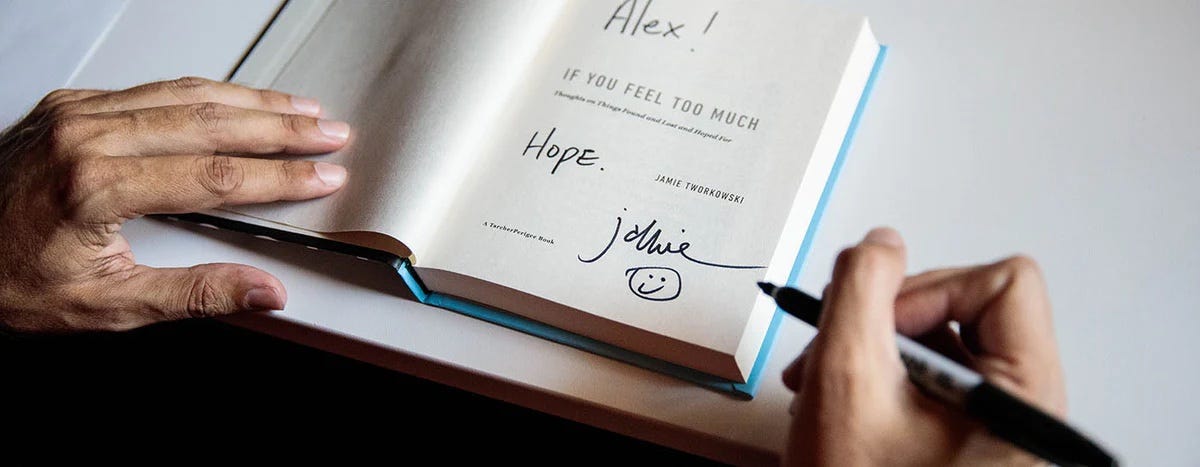 Alex!
IF YOU FEEL TOO MUCH
Thoughts on Things Found and Lost and Hoped For
HOPE.
JAMIE TWORKOWSKI
A TarcherPerigee Book
jamie